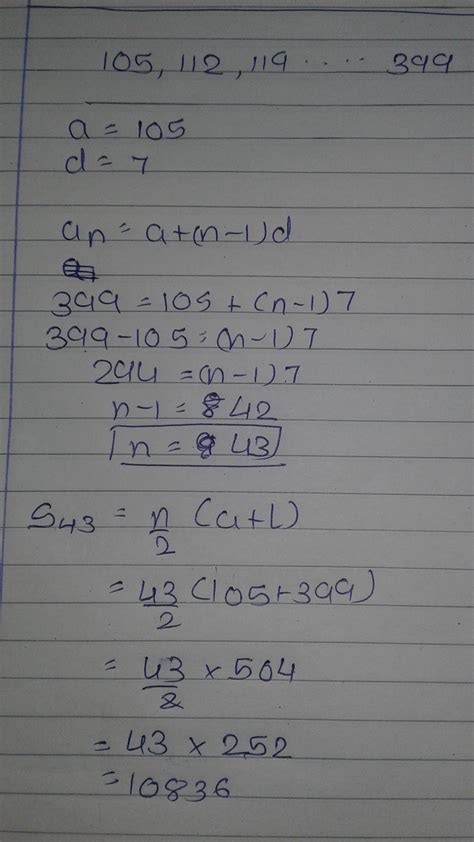 105, 112, 119 ..... 399
a = 105
d = 7
an = a+(n-1)d
399 = 105 + (n-1)7
399-105 = (n-1)7
294 = (n-1)7
n-1 = 42
n = 43
S43 = n/2 (a+l)
= 43/2 (105+399)
= 43/2 × 504
= 43 × 252
= 10836